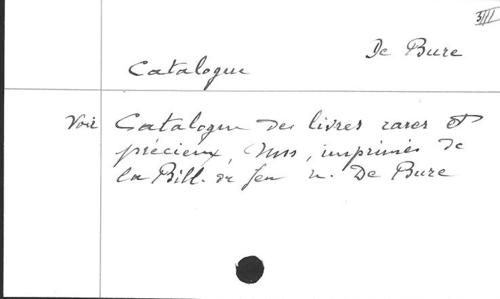 3/III
De Bure
Catalogue
Voir Catalogue des livres rares et
précieux, Mss, imprimés de
la Bibl. de feu M. De Bure